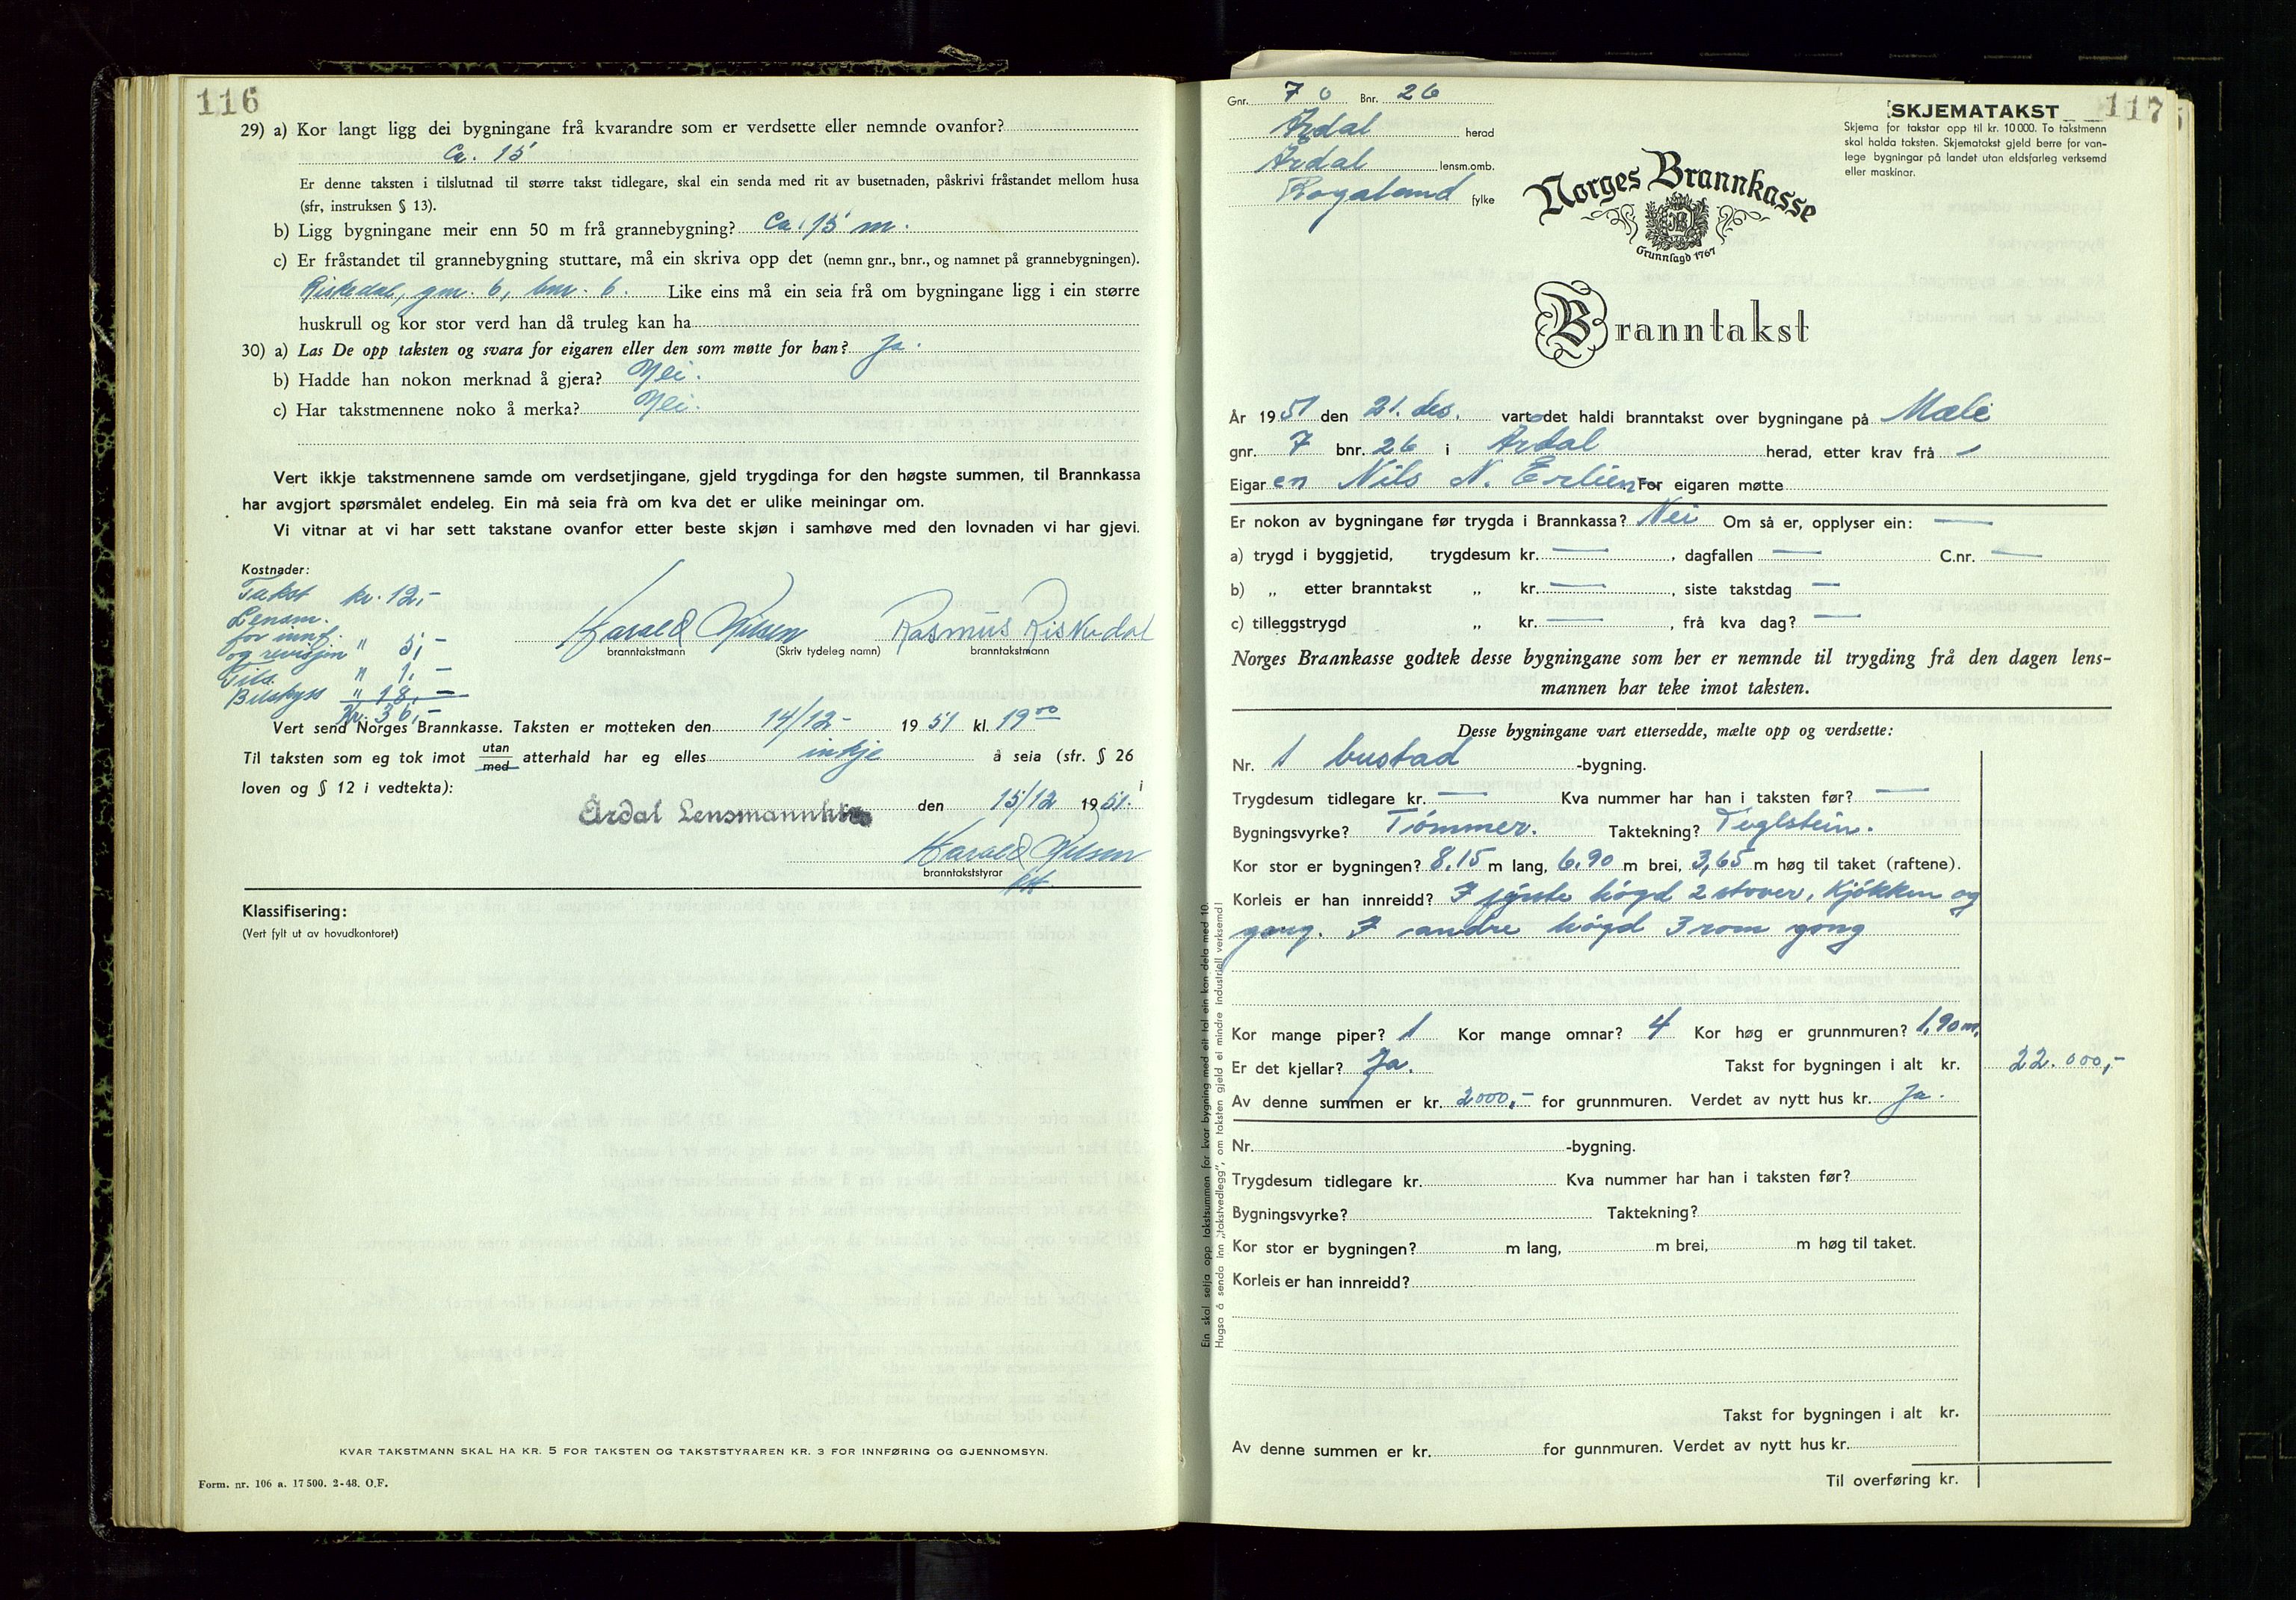 116
29) a) Kor langt ligg dei bygningane frå kvarandre som er verdsette eller nemnde ovanfor?
Ca. 15
Er denne taksten i tilslutnad til større takst tidlegare, skal ein senda med rit av busetnaden, påskrivi fråstandet mellom husa
(sfr, instruksen § 13).
b) Ligg bygningane meir enn 50 m frå grannebygning? Ca. 15 m.
c) Er fråstandet til grannebygning stuttare, må ein skriva opp det (nemn gnr., bnr., og namnet på grannebygningen).
Riskedal, gnr. 6, bnr. 6. Like eins må ein seia frå om bygningane ligg i ein større
huskrull og kor stor verd han då truleg kan ha
30) a) Las De opp taksten og svara for eigaren eller den som møtte for han? Ja.
b) Hadde han nokon merknad å gjera? Nei.
c) Har takstmennene noko å merka? Nei.
Vert ikkje takstmennene samde om verdsetjingane, gjeld trygdinga for den høgste summen, til Brannkassa
har avgjort spørsmålet endeleg. Ein må seia frà om kva det er ulike meiningar om.
Vi vitnar at vi har sett takstane ovanfor etter beste skjøn i samhøve med den lovnaden vi har gjevi.
Kostnader:
Takst kr. 12,-
Lensm.
for innf.
og revisjon " 5,-
" 1,-
Bilskyss " 18,-
Kr. 36,-
Harald Nilsen Rasmus Riskedal
branntakstmann (Skriv tydeleg namn) branntakstmann
Vert send Norges Brannkasse. Taksten er motteken den 14/12- 1951 kl. 19 00
Til taksten som eg tok imot utan med atterhald har eg elles inkje å seia (sfr. § 26 i
loven og § 12 i vedtekta):
Årdal Lensmannh den 15/12 1951.
Harald Nilsen
branntakststyrar
Klassifisering:
(Vert fylt ut av hovudkontoret)
KVAR TAKSTMANN SKAL HA KR. 5 FOR TAKSTEN OG TAKSTSTYRAREN KR. 3 FOR INNFØRING OG GJENNOMSYN.
Form. nr. 106 a. 17 500. 2-48. O.F.
Gnr. 7 Bnr. 26
Årdal herad
Årdal lensm.omb.
Rogaland fylke
SKJEMATAKST 117
Skjema for takstar opp til kr. 10 000. To takstmenn
skal halda taksten. Skjematakst gjeld berre for van-
lege bygningar på landet utan eldsfarleg verksemd
eller maskinar.
Norges Brannkasse
Grunnlagd 1767
Branntakst
År 1951 den 21. des. vart det haldi branntakst over bygningane på Mæle
gnr. 7 bnr. 26 i Årdal herad, etter krav frå
Eigaren Nils N. Erlien For eigaren møtte
Er nokon av bygningane før trygda i Brannkassa? Nei Om så er, opplyser ein: —
a) trygd i byggjetid, trygdesum kr. —, dagfallen — C.nr. —
b) „ etter branntakst „ kr. —, siste takstdag —
c) tilleggstrygd „ kr. —, frå kva dag? —
Norges Brannkasse godtek desse bygningane som her er nemnde til trygding frå den dagen lens-
mannen har teke imot taksten.
Desse bygningane vart ettersedde, mælte opp og verdsette:
Nr. 1 bustad -bygning.
Trygdesum tidlegare kr. — Kva nummer har han i taksten før? —
Bygningsvyrke? Tømmer. Taktekning? Teglstein.
Kor stor er bygningen? 8.15 m lang, 6.90 m brei, 3,65 m høg til taket (raftene).
Korleis er han innreidd? I fyrste høgd 2 stover, Kjøkken og
gang. I andre høgd 3 rom gong
Kor mange piper? 1 Kor mange omnar? 4 Kor høg er grunnmuren? 1,90 m.
Er det kjellar? Ja. Takst for bygningen i alt kr. 22.000,-
Av denne summen er kr. 2000,- for grunnmuren. Verdet av nytt hus kr. Ja.
Nr. -bygning.
Trygdesum tidlegare kr. Kva nummer har han i taksten før?
Bygningsvyrke? Taktekning?
Kor stor er bygningen? m lang, m brei, m høg til taket.
Korleis er han innreidd?
Takst for bygningen i alt kr.
Av denne summen er kr. for gunnmuren. Verdet av nytt hus kr.
Til overføring kr.
Ein skal selja opp takstsummen for kvar bygning med eit tal ein kan dela med 10.
Hugsa å senda inn „takstvedlegg”, om taksten gjeld ei mindre industriell verksemd!